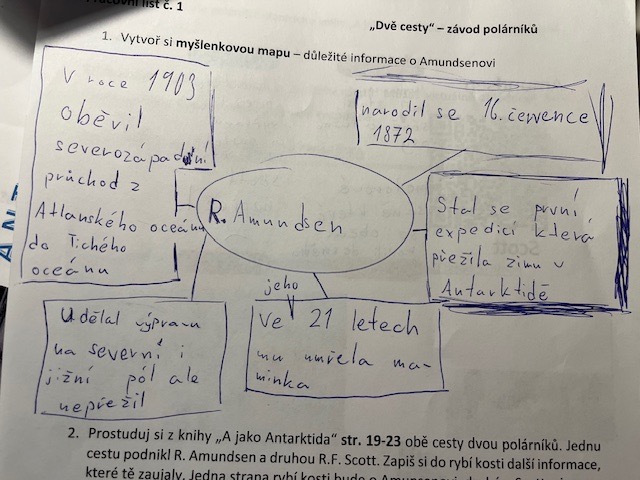 Pracovní list č. 1
„Dvě cesty“ – závod polárníků
1. Vytvoř si myšlenkovou mapu – důležité informace o Amundsenovi
V roce 1903
oběvil
severozápadní
průchod z
Atlanského oceánu
do Tichého
oceánu
narodil se 16. července
1872
R. Amundsen
Stal se první
expedicí která
přežila zimu v
Antarktidě
Udělal výpravu
na severní i
jižní pól ale
nepřežil
jeho
Ve 21 letech
mu umřela ma-
minka
2. Prostuduj si z knihy „A jako Antarktida“ str. 19-23 obě cesty dvou polárníků. Jednu
cestu podnikl R. Amundsen a druhou R.F. Scott. Zapiš si do rybí kosti další informace,
které tě zaujaly. Jedna strana rybí kosti bude o